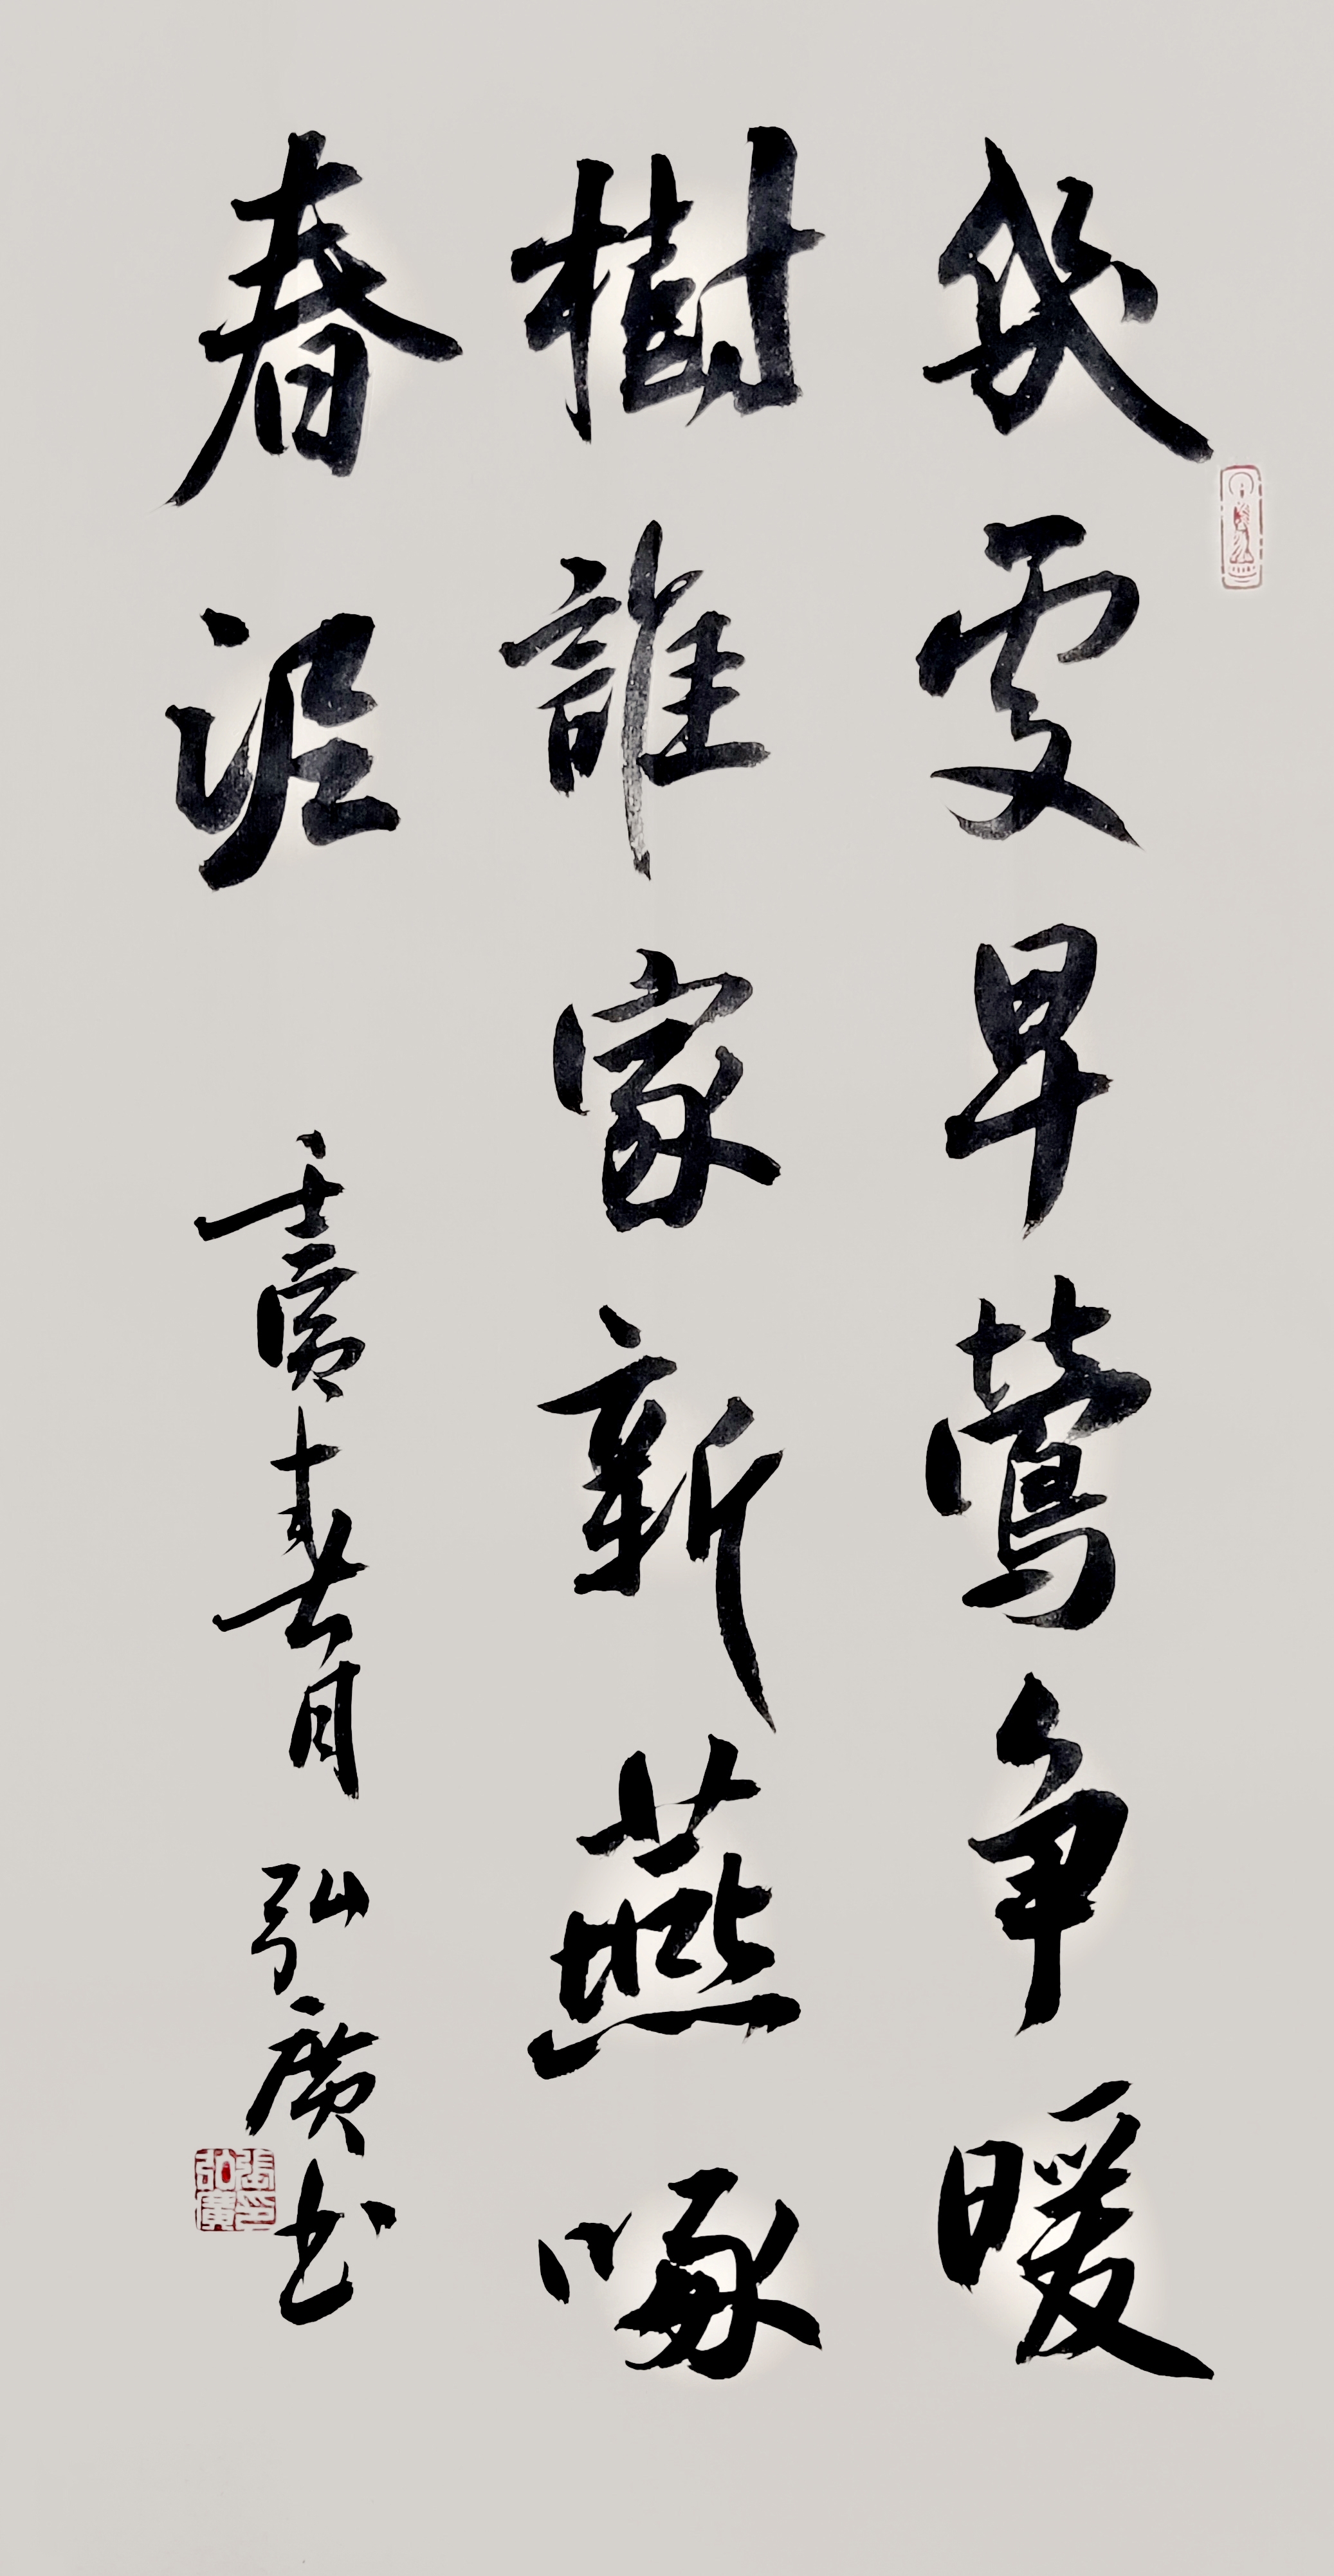 幾處早鶯争暖
樹誰家新燕啄
春泥
壬寅春月 弘廣书
張弘廣印